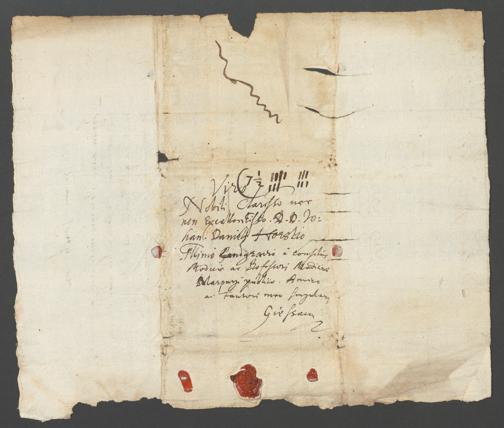 Viro 7½
Nobili Clarissº nec
non Excellentissº. D. D. Jo-
han. Danieli Horstio
Illmi Landgravii à consiliis
Medico ac Professori Medicin.
Marpurg. publico.
ac Fautori meo
Giessam